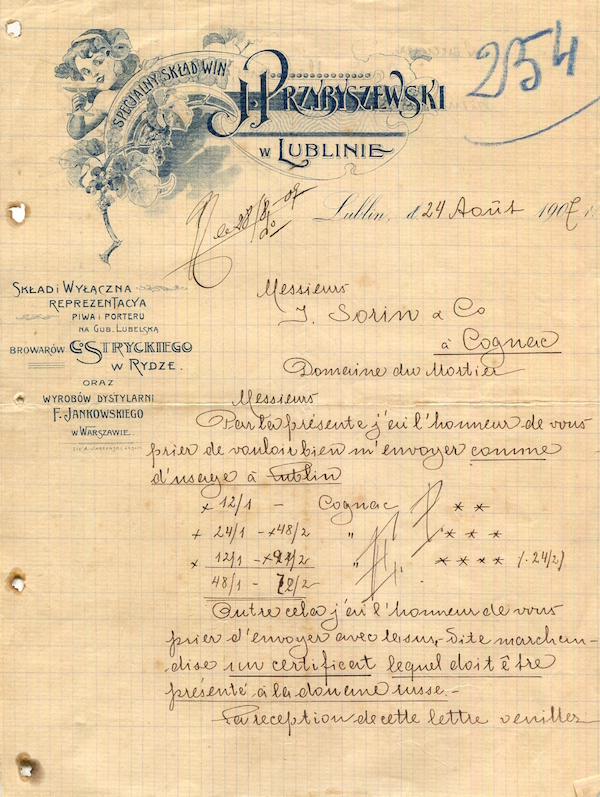 254
SPECJALNY SKŁAD WIN
J. PRZYBYSZEWSKI
W LUBLINIE
Lublin, d. 24 Août 1907 r.
le 28/8 07
SKŁAD I WYŁĄCZNA
REPREZENTACYA
PIWA I PORTERU
NA GUB. LUBELSKĄ
BROWARÓW C. STRYCKIEGO
W RYDZE.
ORAZ
WYROBÓW DYSTYLARNI
F. JANKOWSKIEGO
W WARSZAWIE.
Messieurs
J. Sorin & Co
à Cognac
Domaine du Mortier
Messieurs
Par la présente j'ai l'honneur de vous
prier de vouloir bien m'envoyer comme
d'usage à Lublin
x 12/1 - Cognac * *
x 24/1 - x48/2 " * * *
x 12/1 - x24/2 " * * * * (. 24/2)
48/1 - 72/2
Outre cela j'ai l'honneur de vous
prier d'envoyer avec la sus-dite marchan-
dise un certificat lequel doit être
présenté à la douane russe.-
La reception de cette lettre veuillez